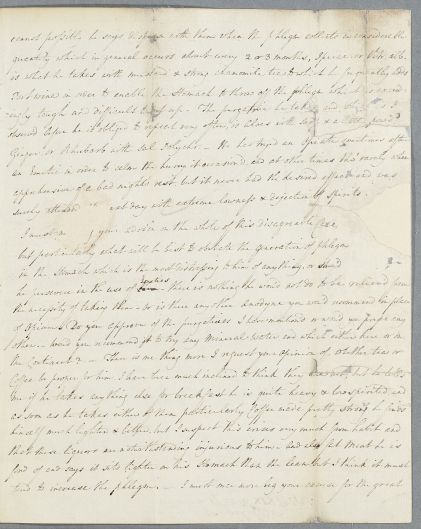 cannot possible he says dispense with them when the phlegm collects in considerable
quantity which in general occurs about every 2 or 3 months,
is what he takes with mustard & strong chamomile tea to which he frequently adds
wine in order to enable the Stomach to throw off the phlegm which is exceed-
ingly tough and difficult to up - The purgatives he takes and which as I
observed before he is obliged to repeat very often, is Aloes with &
Ginger or Rhubarb with - He has tryed an Opiate sometimes after
an Emetic in order to calm the hurry it occasioned and at other times tho' rarely when
apprehensive of a bad nights rest but it never had the desired effect and was
surely attended next day with extreme lowness & dejection of Spirits.
I must your advice on the whole of this disagreeable case
but particularly what will be best to obviate the generation of phlegm
in the Stomach which is the most distressing to him of anything, or should
he persevere in the use of - there is nothing he would not do to be relieved from
the necessity of taking them - or is there any other Anodyne you would recommend in place
of Opium? Do you approve of the purgatives I have mentioned or would you prefer any
other - Would you recommend it to try any Mineral Water and which either here or on
the Continent? - There is one thing more I request your opinion of whether tea or
Coffee be proper for him I have been much inclined to think them but he tells
me if he takes anything else for breakfast he is quite heavy & low spirited, and
as soon as he takes either of them particularly Coffee made pretty strong he finds
himself much lighter & better, but I suspect this arises very much from habit and
that these liquors are notwithstanding injurious to him - and fat Meat he is
fond of and says it sits lighter on his Stomach than the lean but I think it must
tend to increase the phlegm. - I must once more beg your excuse for the great